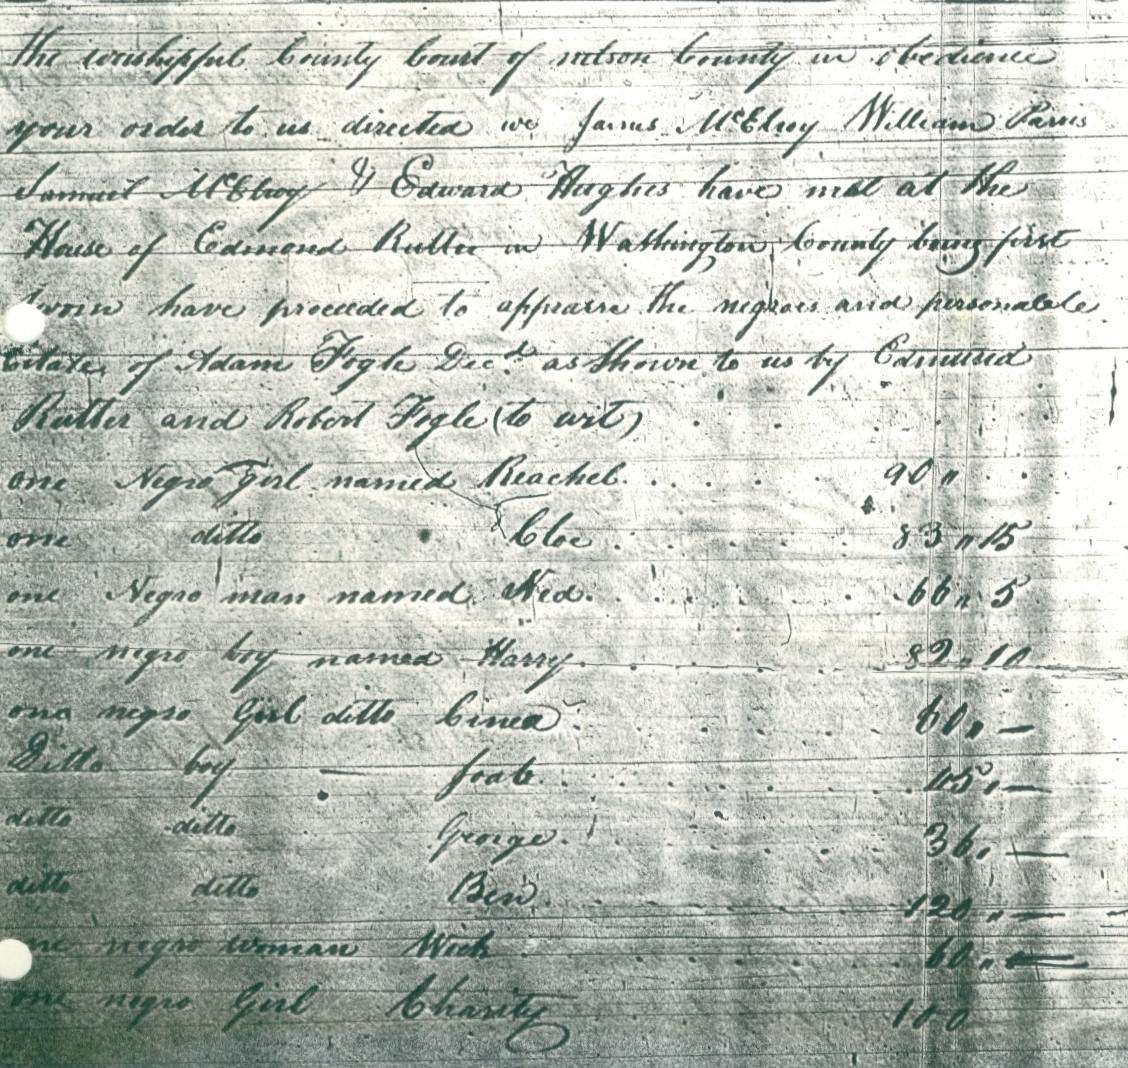 the worshipful County Court of nelson County in obedience
your order to us directed we James McElroy William Parris
Samuel McElroy & Edward Hughes have met at the
House of Edmond Rutter in Washington County being first
sworn have proceeded to appearse the negroes and personalale
Estate, of Adam Fogle Decd as Shown to us by Edmund
Rutter and Robert Fogle (to wit)
one Negro Girl named Reachel. . . . . . 90 "
one ditto Cloe . . . . . 83 " 15
one Negro man named Ned. . . . . . 66 " 5
one negro boy named Harry. . . . . 82 " 10
one negro Girl ditto Cinea . . . . . 60 " —
Ditto boy — . . . . . —
ditto ditto George . . . . . 36 " —
ditto ditto Ben . . . . . 120 " —
one negro woman . . . . . 60 " —
one negro Girl Charity 100